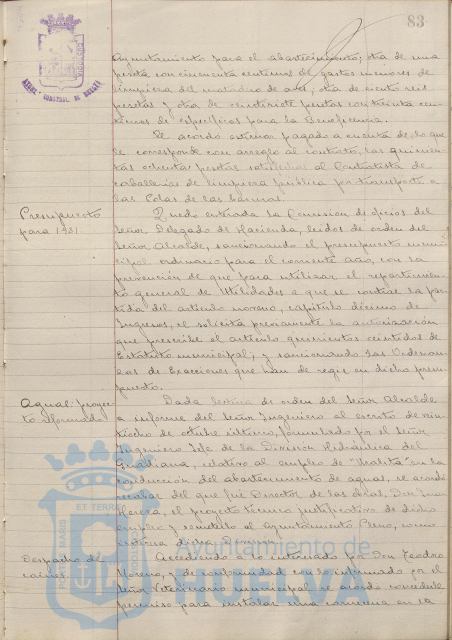 83
Ayuntamiento para el abastecimiento; otra de una
peseta con cincuenta centimos de gastos menores de
limpieza del matadero de aves; otra de ciento seis
pesetas y otra de veintisiete pesetas con treinta cen-
timos de específicos para la Beneficencia.
Se acordó estimar pagado a cuenta de lo que
le corresponde con arreglo al contrato, las quinien-
tas ochenta pesetas satisfechas al Contratista de
caballerías de limpieza pública por transporte a
las Colas de las basuras.
Presupuesto
para 1931
Quedó enterada la Comision de oficios del
Señor Delegado de Hacienda, leidos de orden del
Señor Alcalde, sancionando el presupuesto muni-
cipal ordinario para el corriente año, con la
prevención de que para utilizar el repartimien-
to general de Utilidades a que se contrae la par-
tida del artículo noveno, capítulo décimo de
Ingresos, se solicite previamente la autorización
que prescribe el artículo quinientos veintidos de
Estatuto municipal; y sancionando las Ordenan-
zas de Exacciones que han de regir en dicho presu-
puesto.
Aguas: proyec-
to
Dada lectura de orden del Señor Alcalde
a informe del Señor Ingeniero al escrito de vein-
tiocho de octubre último, formulado por el Señor
Ingeniero Jefe de la División Hidráulica del
Guadiana, relativo al empleo de "Uralita" en la
conducción del abastecimiento de aguas, se acordó
recabar del que fué Director de las obras, Don Juan
Herrera, el proyecto técnico justificativo de dicho
empleo y someterlo al Ayuntamiento Pleno, como
interesa dicha Division.
Despacho de
carnes.
Accediendo a lo interesado por Don Teodoro
Moreno, y de conformidad con lo informado por el
Señor Veterinario municipal se acordó concederle
permiso para instalar una carnicería en la
Ayuntamiento de
HUELVA